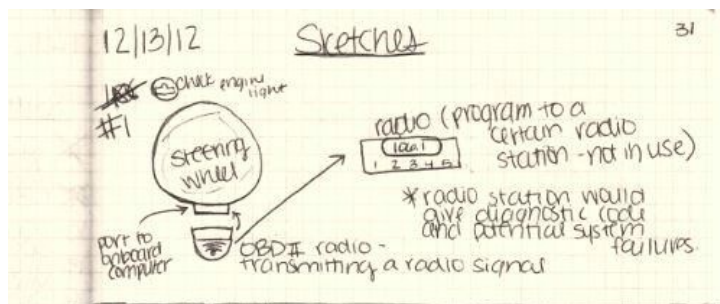 12/13/12
Sketches
31
check engine
light
#1
steering
wheel
port to
onboard
computer
OBD II radio -
transmitting a radio signal
radio (program to a
certain radio
station - not in use)
100.1
1 2 3 4 5
*radio station would
give diagnostic code
and potential system
failures.